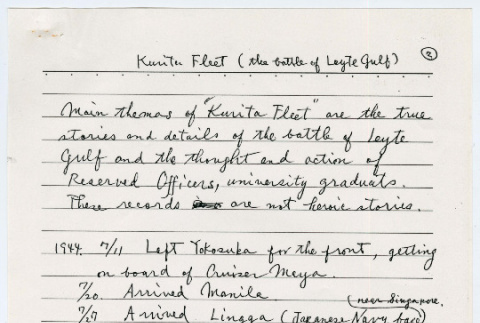 ②
Kurita Fleet (the battle of Leyte Gulf)
Main themas of "Kurita Fleet" are the true
stories and details of the battle of Leyte
Gulf and the thought and action of
Reserved Officers, university graduats.
These records are not heroic stories.
1944. 7/11 Left Yokosuka for the front, getting
on board of Cruiser Maya.
7/20. Arrived Manila
(near Singapore,
7/27 Arrived Lingga (Japanese Navy base)